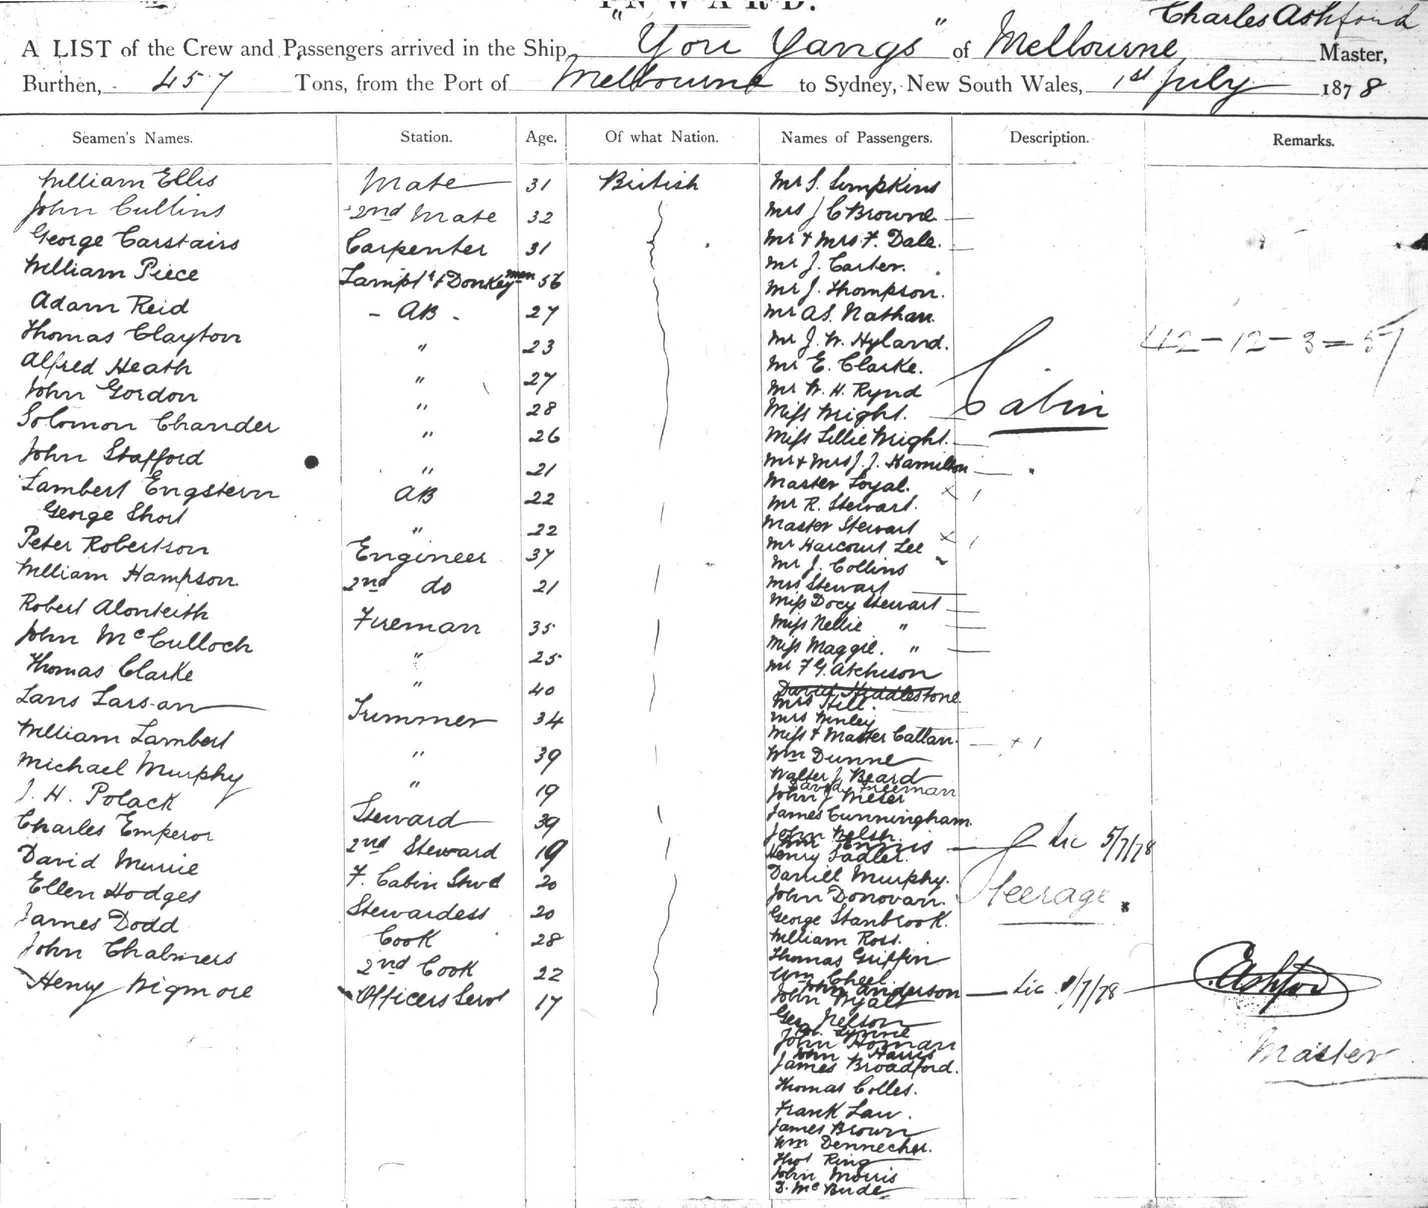 INWARD.
Charles Ashford
A LIST of the Crew and Passengers arrived in the Ship "You Yangs" of Melbourne Master,
Burthen, 457 Tons, from the Port of Melbourne to Sydney, New South Wales, 1st July 1878
Seamen's Names. Station. Age. Of what Nation. Names of Passengers. Description. Remarks.
William Ellis Mate 31 British Mr S. Simpkins
John Cullins 2nd Mate 32 Mrs J C Browne
George Carstairs Carpenter 31 Mr & Mrs F. Dale.
William Piece Lampt & Donkeyman 56 Mr J. Carter.
Mr J. Thompson.
Adam Reid - AB - 27 Mr A S. Nathan
Thomas Clayton " 23 Mr J. W. Hyland.
42-12-3=57
Alfred Heath " 27 Mr E. Clarke.
John Gordon " 28 Mr W. H. Rynd
Cabin
Miss Wright.
Solomon Chander " 26 Miss Lillie Wright.
John Stafford " 21 Mr & Mrs J. J. Hamilton
Lambert Engstern AB 22 Master Loyal. x 1
Mr R. Stewart.
George Short " 22 Master Stewart x 1
Peter Robertson Engineer 37 Mr Harcourt Lee
Mr J. Collins
William Hampson 2nd do 21 Mrs Stewart
Miss Docy Stewart
Robert Alonteith Fireman 35 Miss Nellie "
John McCulloch " 25 Miss Maggie. "
Mr F G Atchison
Thomas Clarke " 40 David Hiddlestone.
Mrs Hill.
Lars Larsan Trimmer 34 Mrs Winley
Miss & Master Callan. + 1
William Lambert " 39 Wm Dunne
Michael Murphy " 19 Walter J Beard
David Freeman
John J Meser
J. H. Polack Steward 39 James Cunningham
Charles Emperor 2nd Steward 19 John Welsh.
Ennis Lic 5/7/78
Henry Sadler.
David Murrie F. Cabin Stwd 20 Daniell Murphy.
Steerage
Ellen Hodges Stewardess 20 John Donovan.
George Stanbrook.
James Dodd Cook 28 William Ross.
John Chalmers 2nd Cook 22 Thomas Griffin
C Ashford
Wm Cheel.
Henry Wigmore Officers Servt 17 John Anderson Lic /7/78
John Wyatt
Geo Nelson
Lynne
John Homan
Master
John Harris
James Broadford.
Thomas Colles.
Frank Law.
James Brown
Wm Dennecher.
Thos Ring
John Morris
D. McBride